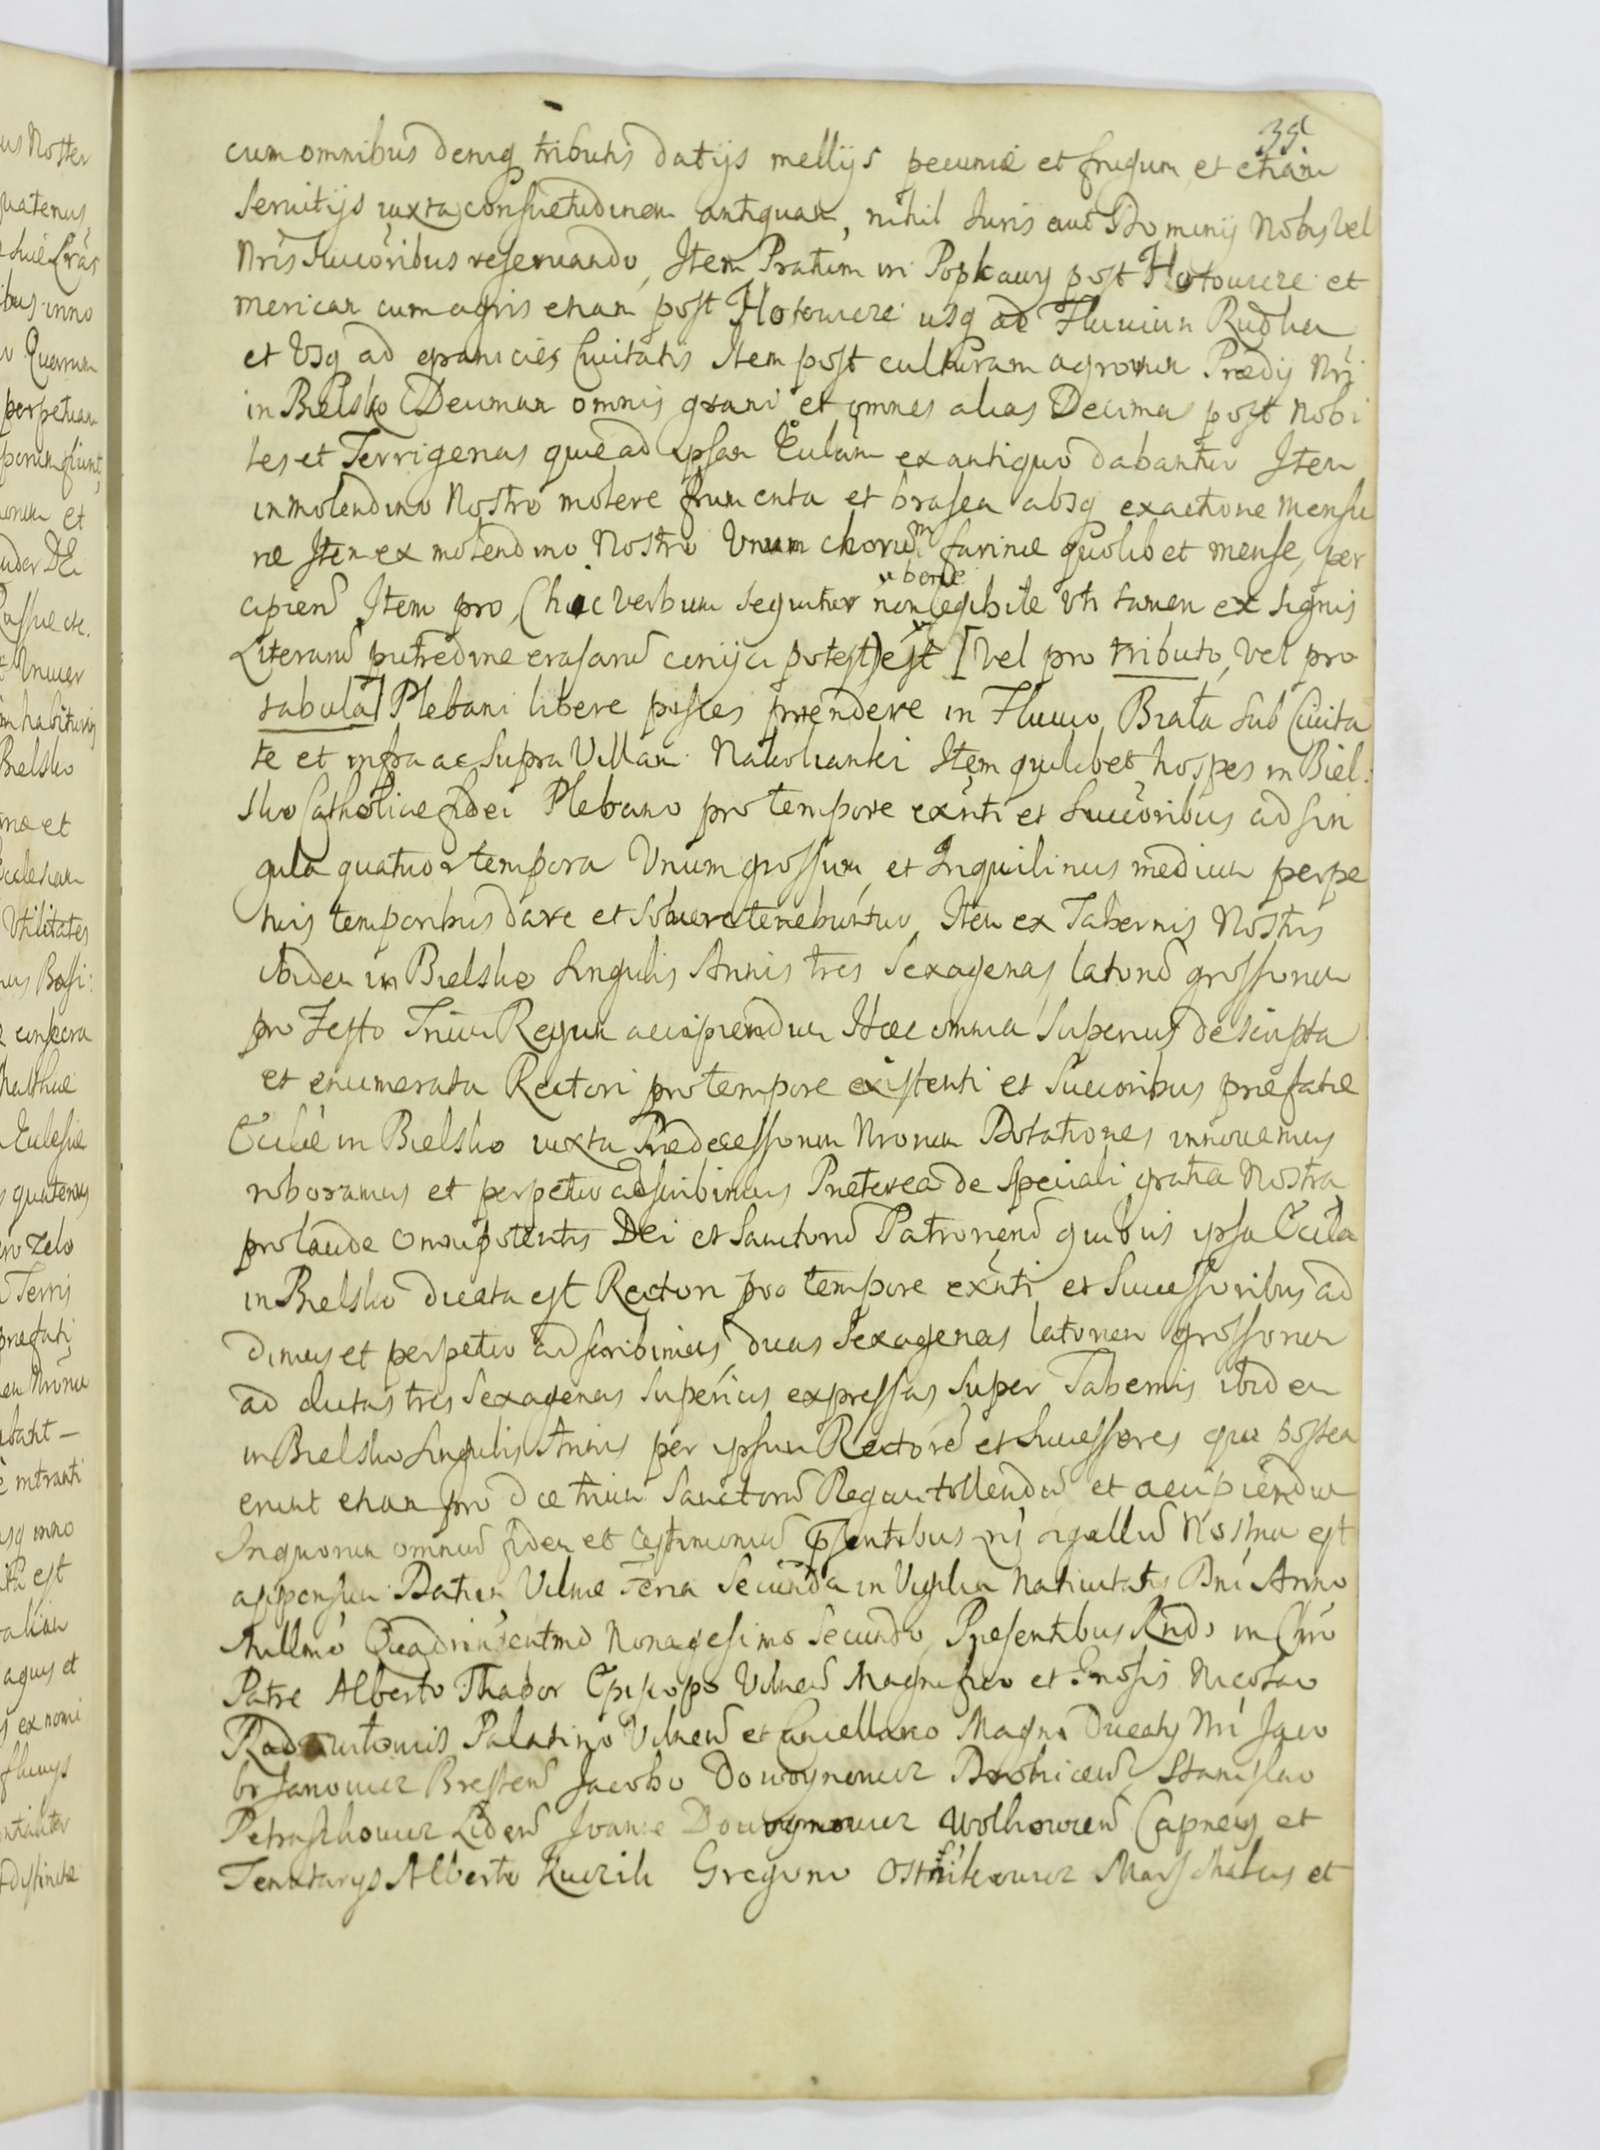 35
cum omnibus deniq tributis datijs mellijs pecuniæ et frugum et etiam
Seruitijs iuxta consuetudinem antiquam, nihil Iuris aut Dominij Nobis vel
Nris Succoribus reseruando, Item Pratum in Popkawy post Hotowcze et
mericam cum agris etiam post Hotowcze usq ad Fluuium Rudka
et Vsq ad granicies Ciuitatis Item post culturam agrorum Prædij Nri
in Bielsko Decimam omnis grani et omnes alias Decimas post Nobi
les et Terrigenas quæ ad ipsam Ecclam ex antiquo dabantur Item
in molendino Nostro molere frumenta et brasea absq exactione mensu
ræ Item ex molendino Nostro Unum chorum farinæ quolibet mense, per
cipiend Item pro (hic verbum sequitur non bene legibile vti tamen ex signis
Literarum putredine erasarum conijci potest) est [vel pro tributo, vel pro
tabula] Plebani libere pisces prendere in Fluuio Biała sub Ciuita
te et infra ac supra Villam Nakolianki Item quilibet hospes in Biel:
sko Catholicæ fidei Plebano pro tempore exnti et Succoribus ad sin
gula quatuor tempora Vnum grossum, et Inquilinus medium perpe
tuis temporibus dare et soluere tenebuntur, Item ex Tabernis Nostris
ibidem in Bielsko Singulis Annis tres Sexagenas latorum grossorum
pro Festo Trium Regum accipiendum Hæc omnia Superius descripta
et enumerata Rectori pro tempore existenti et Succoribus præfatæ
Ecclæ in Bielsko iuxta Prædecessorum Nrorum Dotationes innouamus
roboramus et perpetuo adscribimus Præterea de speciali gratia Nostra
pro laude Omnipotentis Dei et Sanctorum Patronorum quibus ipsa Eccla
in Bielsko dicata est Rectori pro tempore exnti et Successoribus ad
dimus et perpetuo adscribimus duas Sexagenas latorum grossorum
ad dictas tres Sexagenas Superius expressas Super Tabernis ibidem
in Bielsko Singulis Annis per ipsum Rectorem et Successores qui postea
erunt etiam pro die trium Sanctorum Regum tollendum et accipiendum
In quorum omnium fidem et testimonium Psentibus ris sigillum Nostrum est
appensum Datum Vilnæ Feria Secunda in Vigilia Natiuitatis Dni Anno
Millmo Quadringentmo Nonagesimo Secundo, Presentibus Rndo in Chro
Patre Alberto Thabor Episcopo Vilnen Magnifico et Gnosis Nicolao
Radiuilowic Palatino Vilnen et Cancellario Magni Ducatus Nri Jaco
bo Janowicz Bresten Jacobo Dowoynowicz Drohicen Stanislao
Petraszkowicz Liden Ivane Dowoynowicz Wolkowicen Capneis et
Tenutarys Alberto Kuczik Gregorio Ostikowicz Marschalcis et